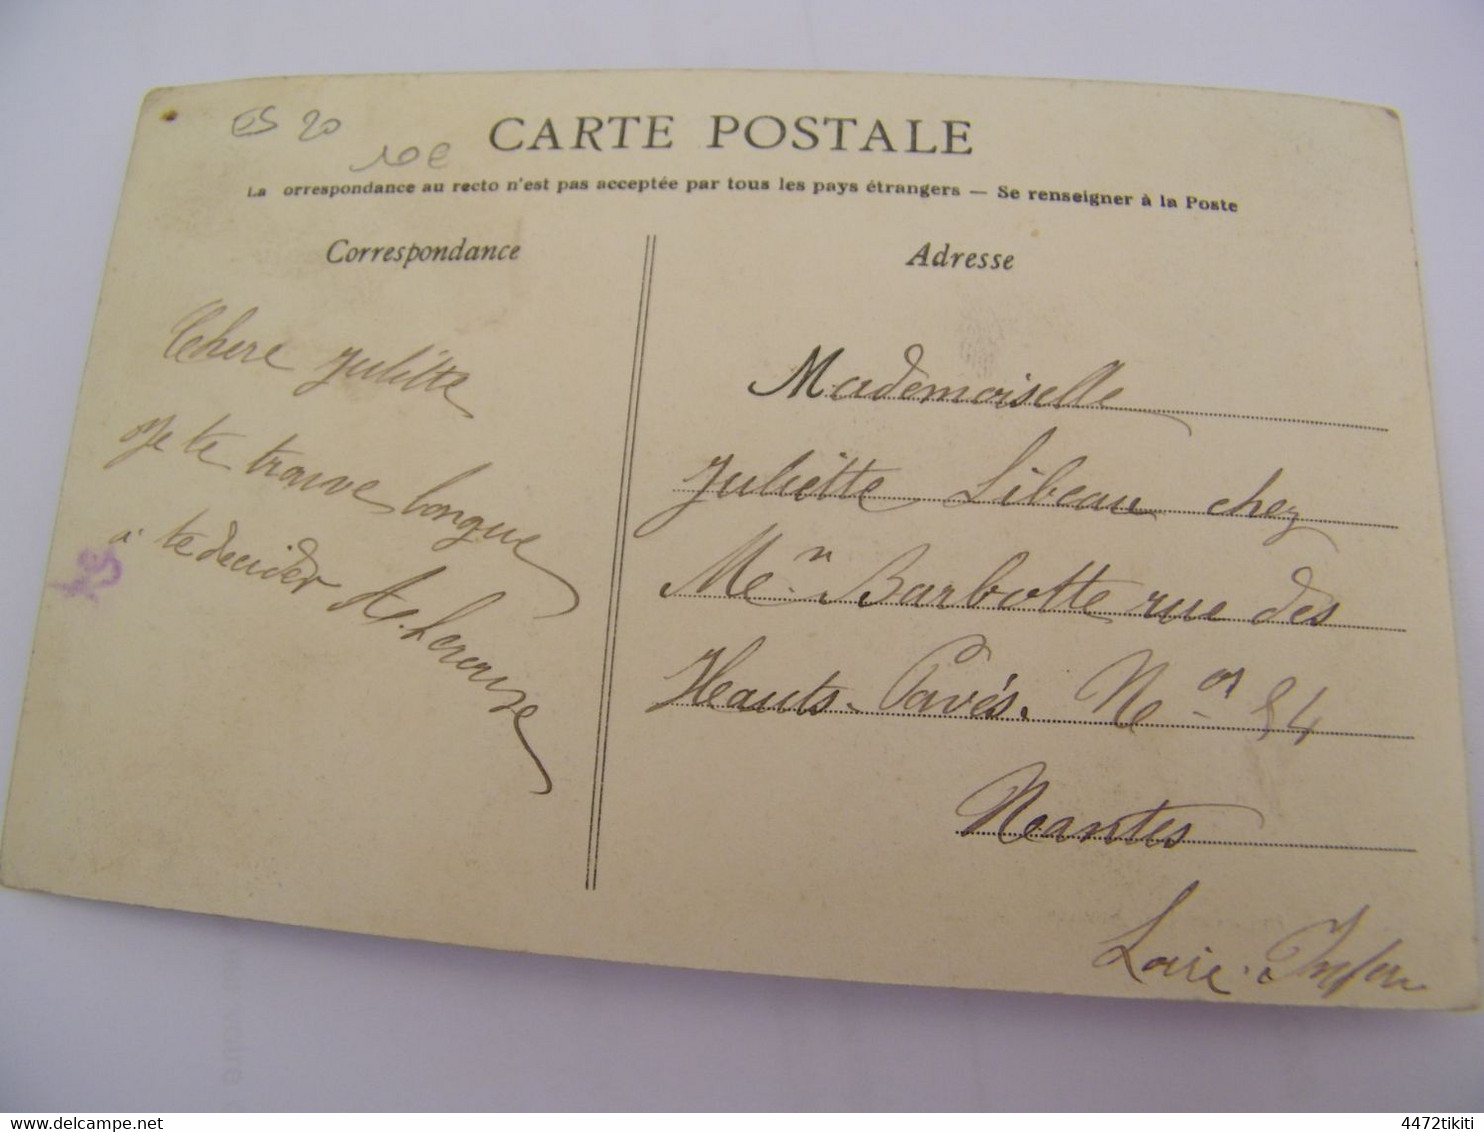 es 20
10€
CARTE POSTALE
La orrespondance au recto n'est pas acceptée par tous les pays étrangers — Se renseigner à la Poste
Correspondance
Chere Juliette
Je te trouve longue
a te decider
Adresse
Mademoiselle
Juliette Libeau chez
Me.n Barbotte rue des
Hauts-Pavés. 54
Nantes
Loire. Infer
delcampe.net
4472tikiti